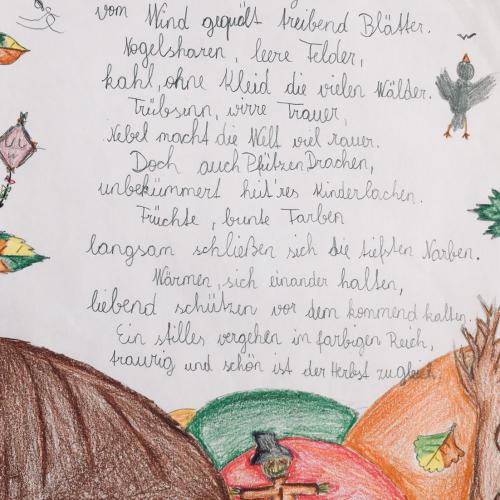 vom Wind gequält treibend Blätter.
Vogelsharen, leere Felder,
kahl, ohne Kleid die vielen Wälder.
Trübsinn, wirre Trauer,
Nebel macht die Welt viel rauer.
Doch auch Pfützen, Drachen,
unbekümmert heit'res Kinderlachen.
Früchte, bunte Farben
langsam schließen sich die tiefsten Narben.
Wärmen, sich einander halten,
liebend schützen vor dem kommend kalten.
Ein stilles vergehen in farbigen Reich,
traurig und schön ist der Herbst zugleich.